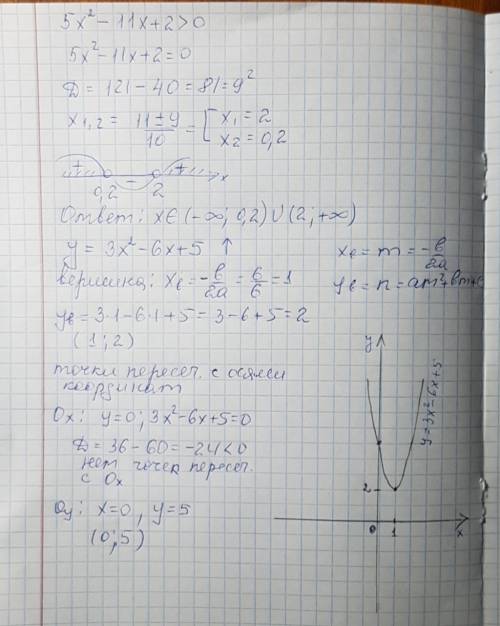 5x² - 11x + 2 > 0
5x² - 11x + 2 = 0
D = 121 - 40 = 81 = 9²
x₁,₂ = (11 ± 9)/10 = [ x₁ = 2
x₂ = 0,2
+ - +
0,2 2 x
Ответ: x ∈ (-∞; 0,2) ∪ (2; +∞)
y = 3x² - 6x + 5 ↑
xв = m = -в/2a
вершина: xв = -в/2a = 6/6 = 1
yв = n = am² + вm + c
yв = 3·1 - 6·1 + 5 = 3 - 6 + 5 = 2
(1; 2)
точки пересеч. с осями
координат
Ox: y = 0; 3x² - 6x + 5 = 0
D = 36 - 60 = -24 < 0
нет точек пересеч.
с Ox
Oy: x = 0, y = 5
(0; 5)
y
y = 3x² - 6x + 5
2
0 1 x